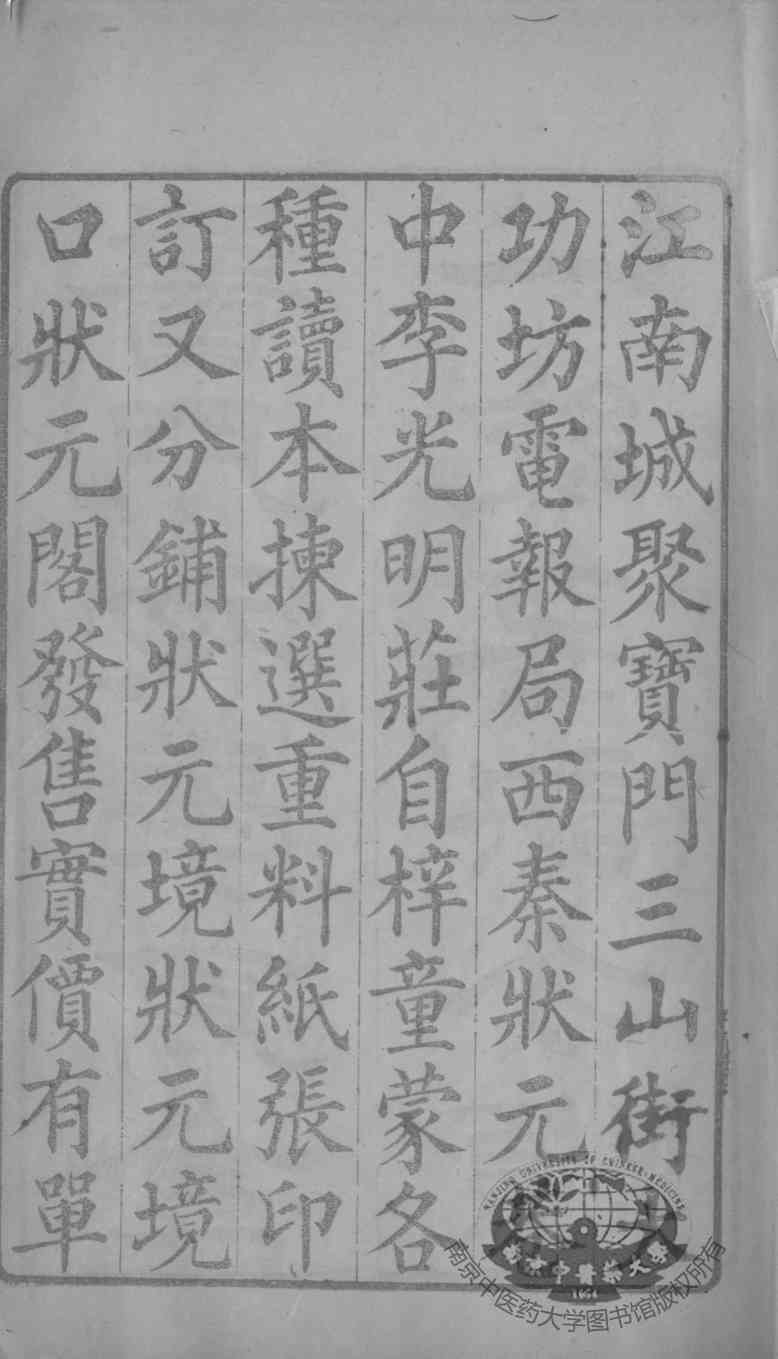 江南城聚寶門三山街
功坊電報局西秦狀元
中李光明莊自梓童蒙各
種讀本揀選重料紙張印
訂又分鋪狀元境狀元境
口狀元閣發售實價有單
NANJING UNIVERSITY OF CHINESE MEDICINE
南京中醫藥大學
1954
南京中医药大学图书馆版权所有